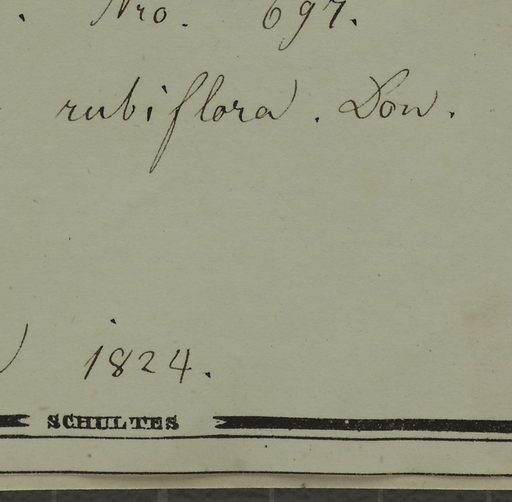 . Nro. 697.
rubiflora. Don.
1824.
SCHULTES